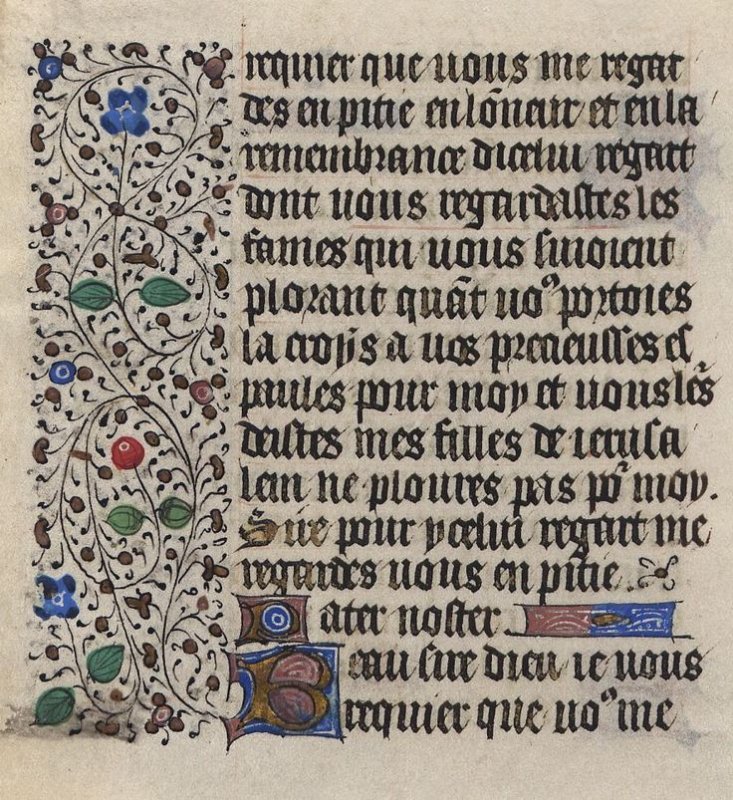 requier que uous me regar
des en pitie en lōneur et en la
remembrance dicelui regart
dont uous regardastes les
fames qui uous suioient
plorant quāt uoꝰ portoies
la croys a uos precieusses es
paules pour moy et uous lēs
deistes mes filles de ierusa
lem ne ploures pas po᷑ moy.
Sire pour ycelui regart me
regardes uous en pitie.
Pater noster
Beau sire dieu ie uous
requier que uoꝰ me